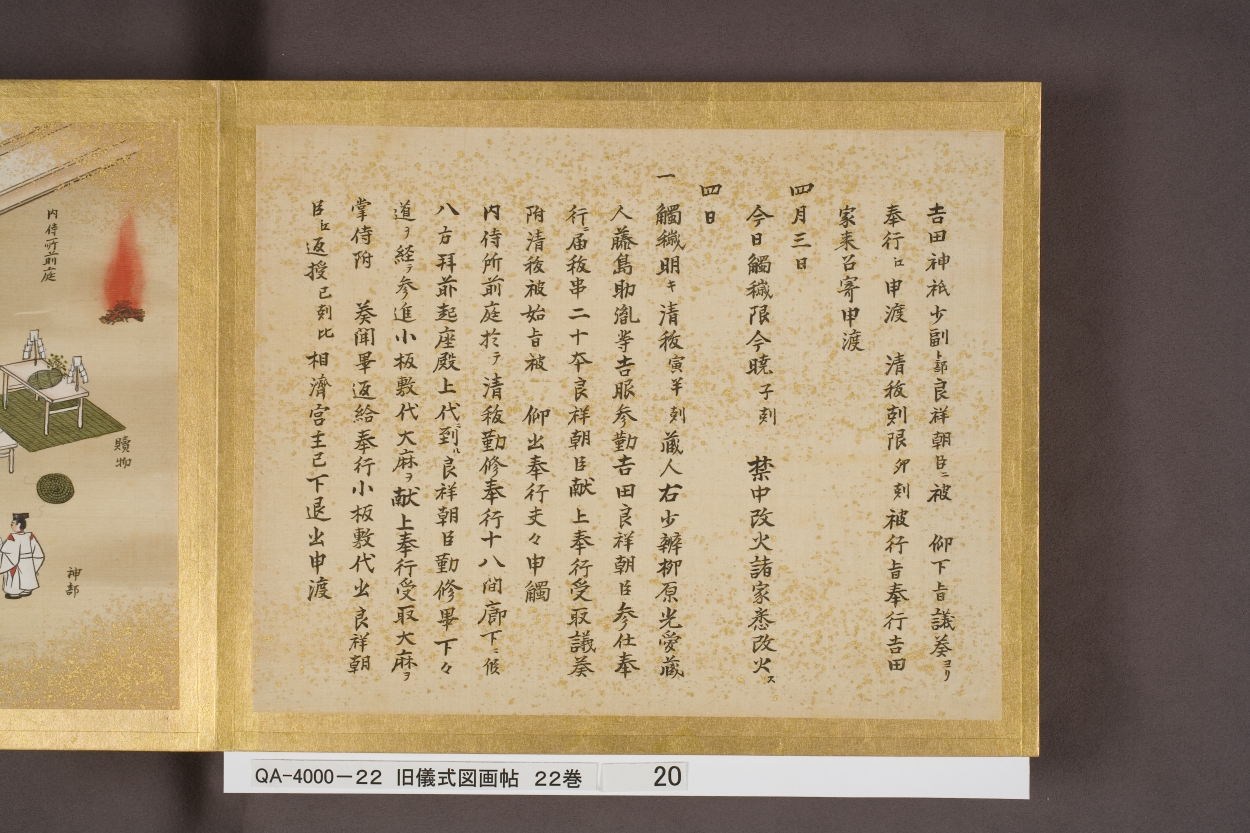 吉田神祇少副卜部良祥朝臣ニ被　仰下旨議奏ヨリ
奉行江申渡　清祓刻限卯刻被行旨奉行吉田
家来召寄申渡
四月三日
今日觸穢限今暁子刻　禁中改火諸家悉改火ス
四日
一觸穢明キ清祓寅半刻蔵人右少辨柳原光愛蔵
人藤島助胤等吉服参勤吉田良祥朝臣参仕奉
行ニ届祓串二十本良祥朝臣献上奉行受取議奏
附清祓被始旨被　仰出奉行夫々申觸
内侍所前庭於テ清祓勤修奉行十八間廊下ニ候
八方拜前起座殿上代ニ到ル良祥朝臣勤修畢下々
道ヲ経テ参進小板敷代大麻ヲ献上奉行受取大麻ヲ
掌侍附　奏聞畢返給奉行小板敷代出良祥朝
臣江返授已刻比相濟宮主已下退出申渡
内侍所前庭
贖物
神部
QA-4000-22 旧儀式図画帖 22巻 20